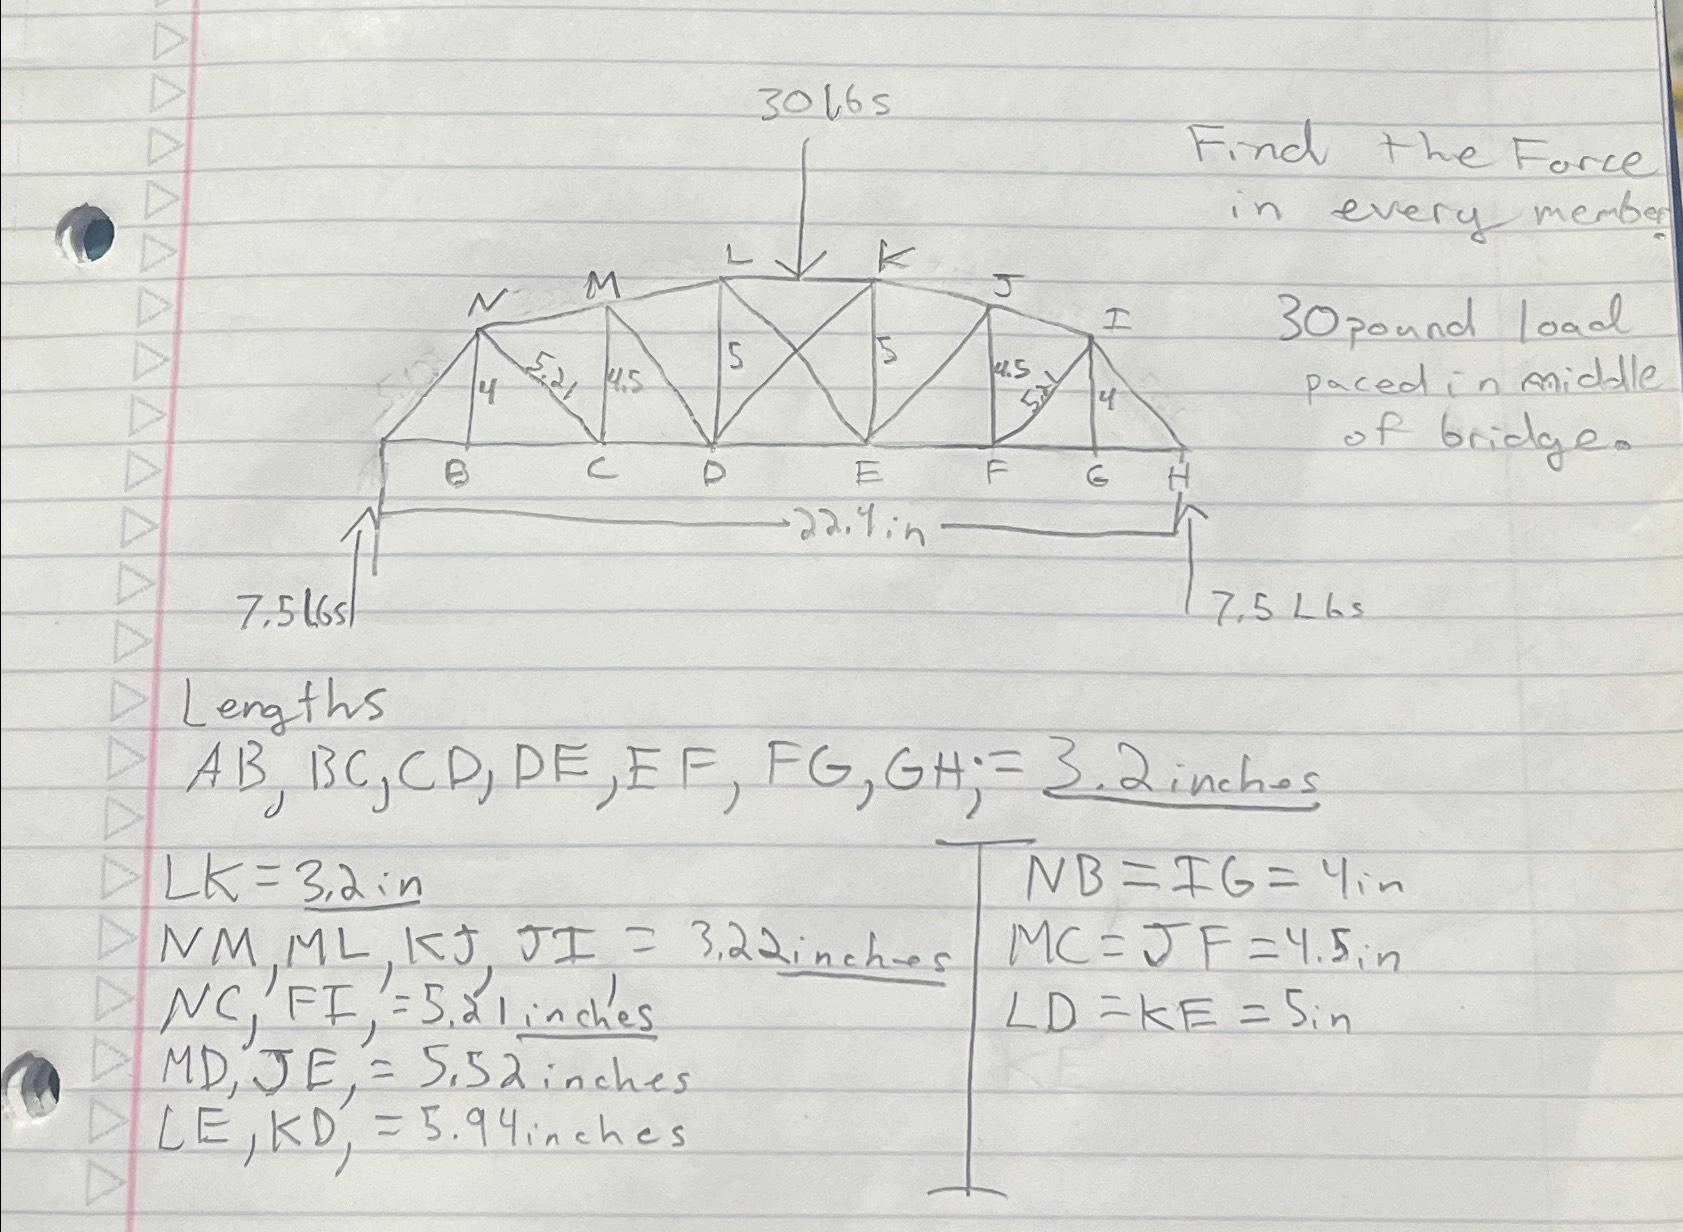 30 lbs
Find the Force
in every member.
L K
N M J
I
30 pound load
paced in middle
of bridge.
4 5.21 4.5 5 5 4.5 5.21 4
B C D E F G H
22.4in
7.5lbs 7.5 Lbs
Lengths
AB, BC, CD, DE, EF, FG, GH;= 3.2 inches
LK = 3.2 in
NM, ML, KJ, JI = 3.22 inches
NC, FI, = 5.21 inches
MD, JE, = 5.52 inches
LE, KD, = 5.94 inches
NB = IG = 4in
MC = JF = 4.5in
LD = KE = 5in
KE